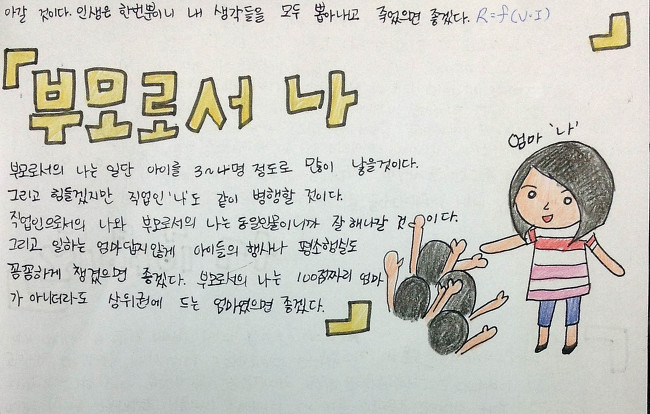 아갈 것이다. 인생은 한번뿐이니 내 생각들을 모두 뽑아내고 죽었으면 좋겠다. R=f(V·I)
「부모로서 나」
엄마 '나'
부모로서의 나는 일단 아이를 3~4명 정도로 많이 낳을것이다.
그리고 힘들겠지만 직업인 '나'도 같이 병행할 것이다.
직업인으로서의 나와 부모로서의 나는 동일인물이니까 잘 해나갈 것이다.
그리고 일하는 엄마답지않게 아이들의 행사나 평소행실도
꼼꼼하게 챙겼으면 좋겠다. 부모로서의 나는 100점짜리 엄마
가 아니더라도 상위권에 드는 엄마였으면 좋겠다.